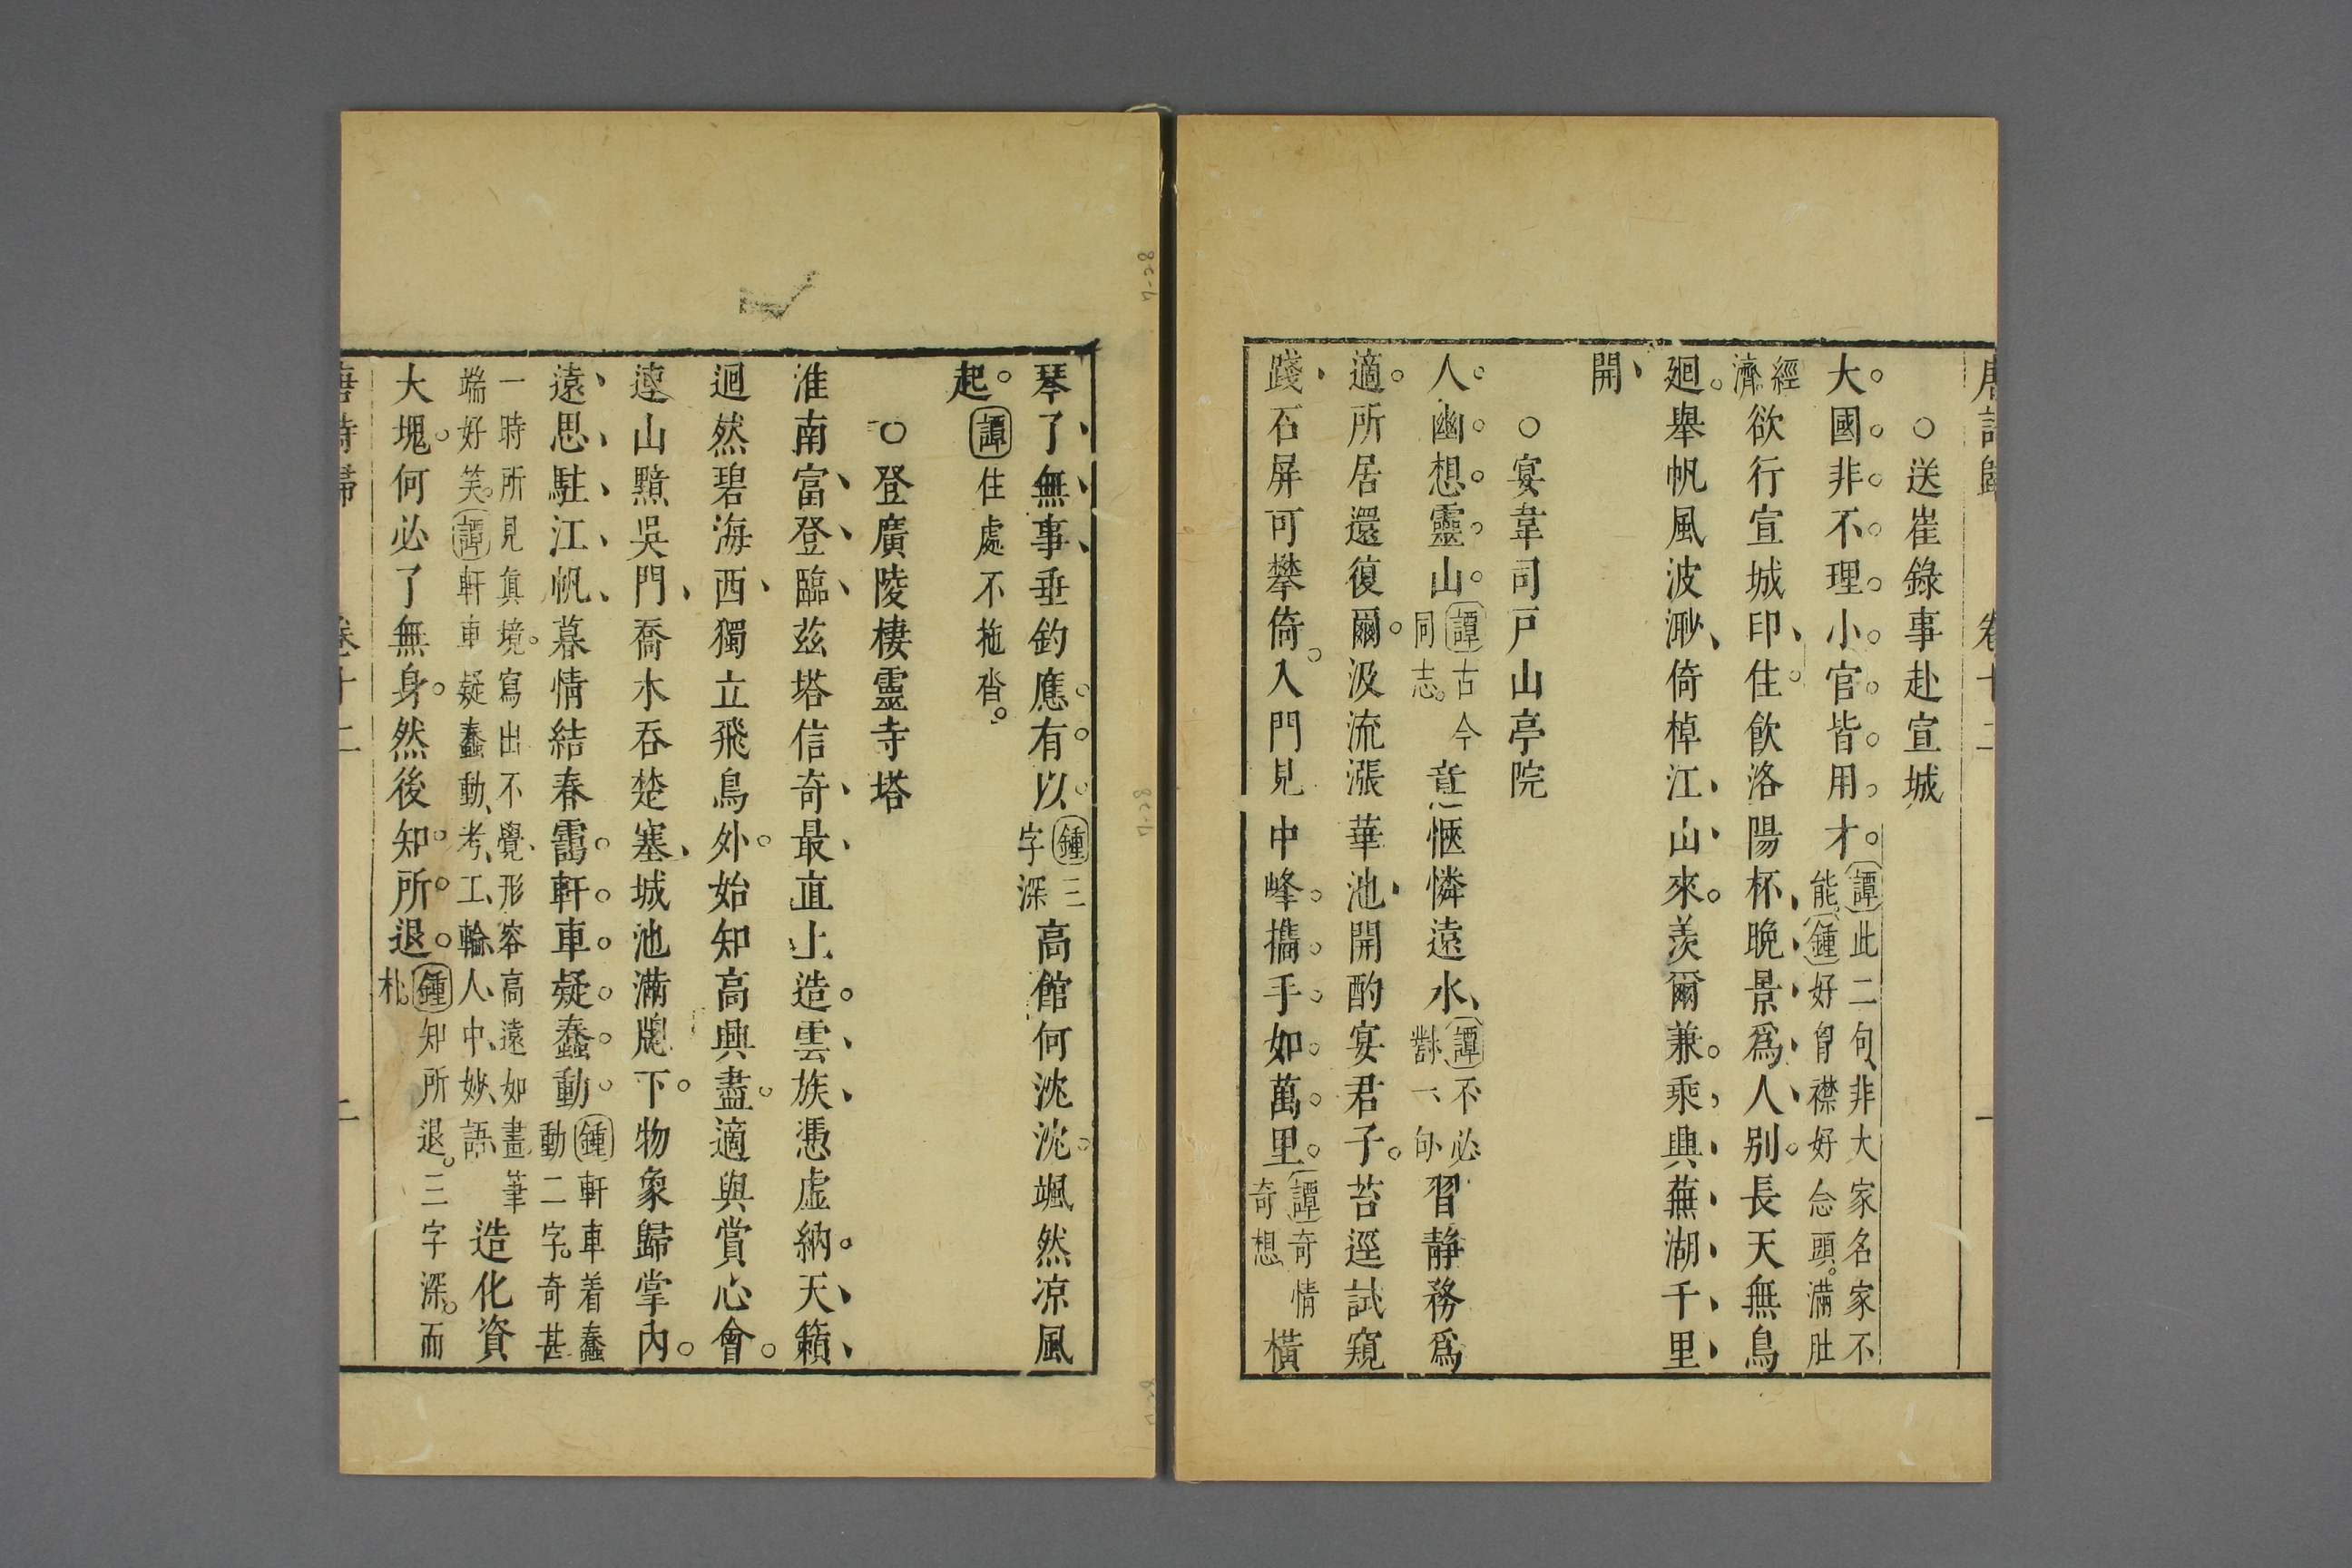 唐詩歸 卷十二 一
○送崔錄事赴宣城
大國非不理小官皆用才譚此二句非大家名家不能鍾好胷襟好念頭滿肚
經濟欲行宣城印住飲洛陽杯晚景爲人別長天無鳥
廻舉帆風波渺倚棹江山來羨爾兼乘興蕪湖千里
開
○宴韋司戸山亭院
人幽想靈山譚古今同志意愜憐遠水譚不必對一句習静務爲
適所居還復爾汲流漲華池開酌宴君子苔逕試窺
踐石屏可攀倚入門見中峰攜手如萬里譚奇情奇想橫
琴了無事垂釣應有以鍾三字深高館何沈沈颯然凉風
起譚住處不拖沓
○登廣陵棲靈寺塔
淮南富登臨茲塔信奇最直上造雲族憑虛納天籟
迴然碧海西獨立飛鳥外始知高興盡適與賞心會
連山黯吳門喬木吞楚塞城池滿牕下物象歸掌內
遠思駐江帆暮情結春靄軒車疑蠢動鍾軒車着蠢動二字奇甚
一時所見眞境寫出不覺形容高遠如畫筆端好笑譚軒車疑蠢動考工輪人中妙語造化資
大塊何必了無身然後知所退鍾知所退三字深而朴
唐詩歸 卷十二 二